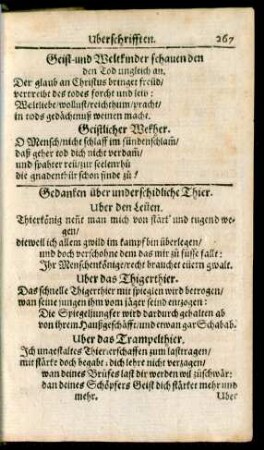 Uberschrifften. 267
Geist-und Weltkinder schauen den
den Tod ungleich an.
Der glaub an Christus bringet freüd/
vertreibt des todes forcht und leid:
Weltliebe/wollust/reichtum/pracht/
in tods gedächtnuß weinen macht.
Geistlicher Wekher.
O Mensch/nicht schlaff im sündenschlaf/
daß geher tod dich nicht verdam/
und spahter reü/zur seelenrhü
die gnadenthür schon finde zu!
Gedanken über underschidliche Thier.
Uber den Leüen.
Thierkönig neñt man mich von stärk' und tugend we-
gen/
dieweil ich allem gwild im kampf bin überlegen/
und doch verschohne dem das mir zu füsse fallt:
Ihr Menschenkönige/recht brauchet eüern gwalt.
Uber das Thigerthier.
Das schnelle Thigerthier mit spieglen wird betrogen/
wan seine jungen ihm vom jäger seind entzogen:
Die Spiegeljungfer wird dardurch gehalten ab
von ihrem Haußgeschäfft/und etwan gar Schabab.
Uber das Trampelthier.
Ich ungestaltes Thier erschaffen zum lasttragen/
mit stärke doch begabt: dich lehre nicht verzagen/
wan deines Brüfes last dir werden wil zuschwär:
dan deines Schöpfers Geist dich stärket mehr und
mehr. Uber